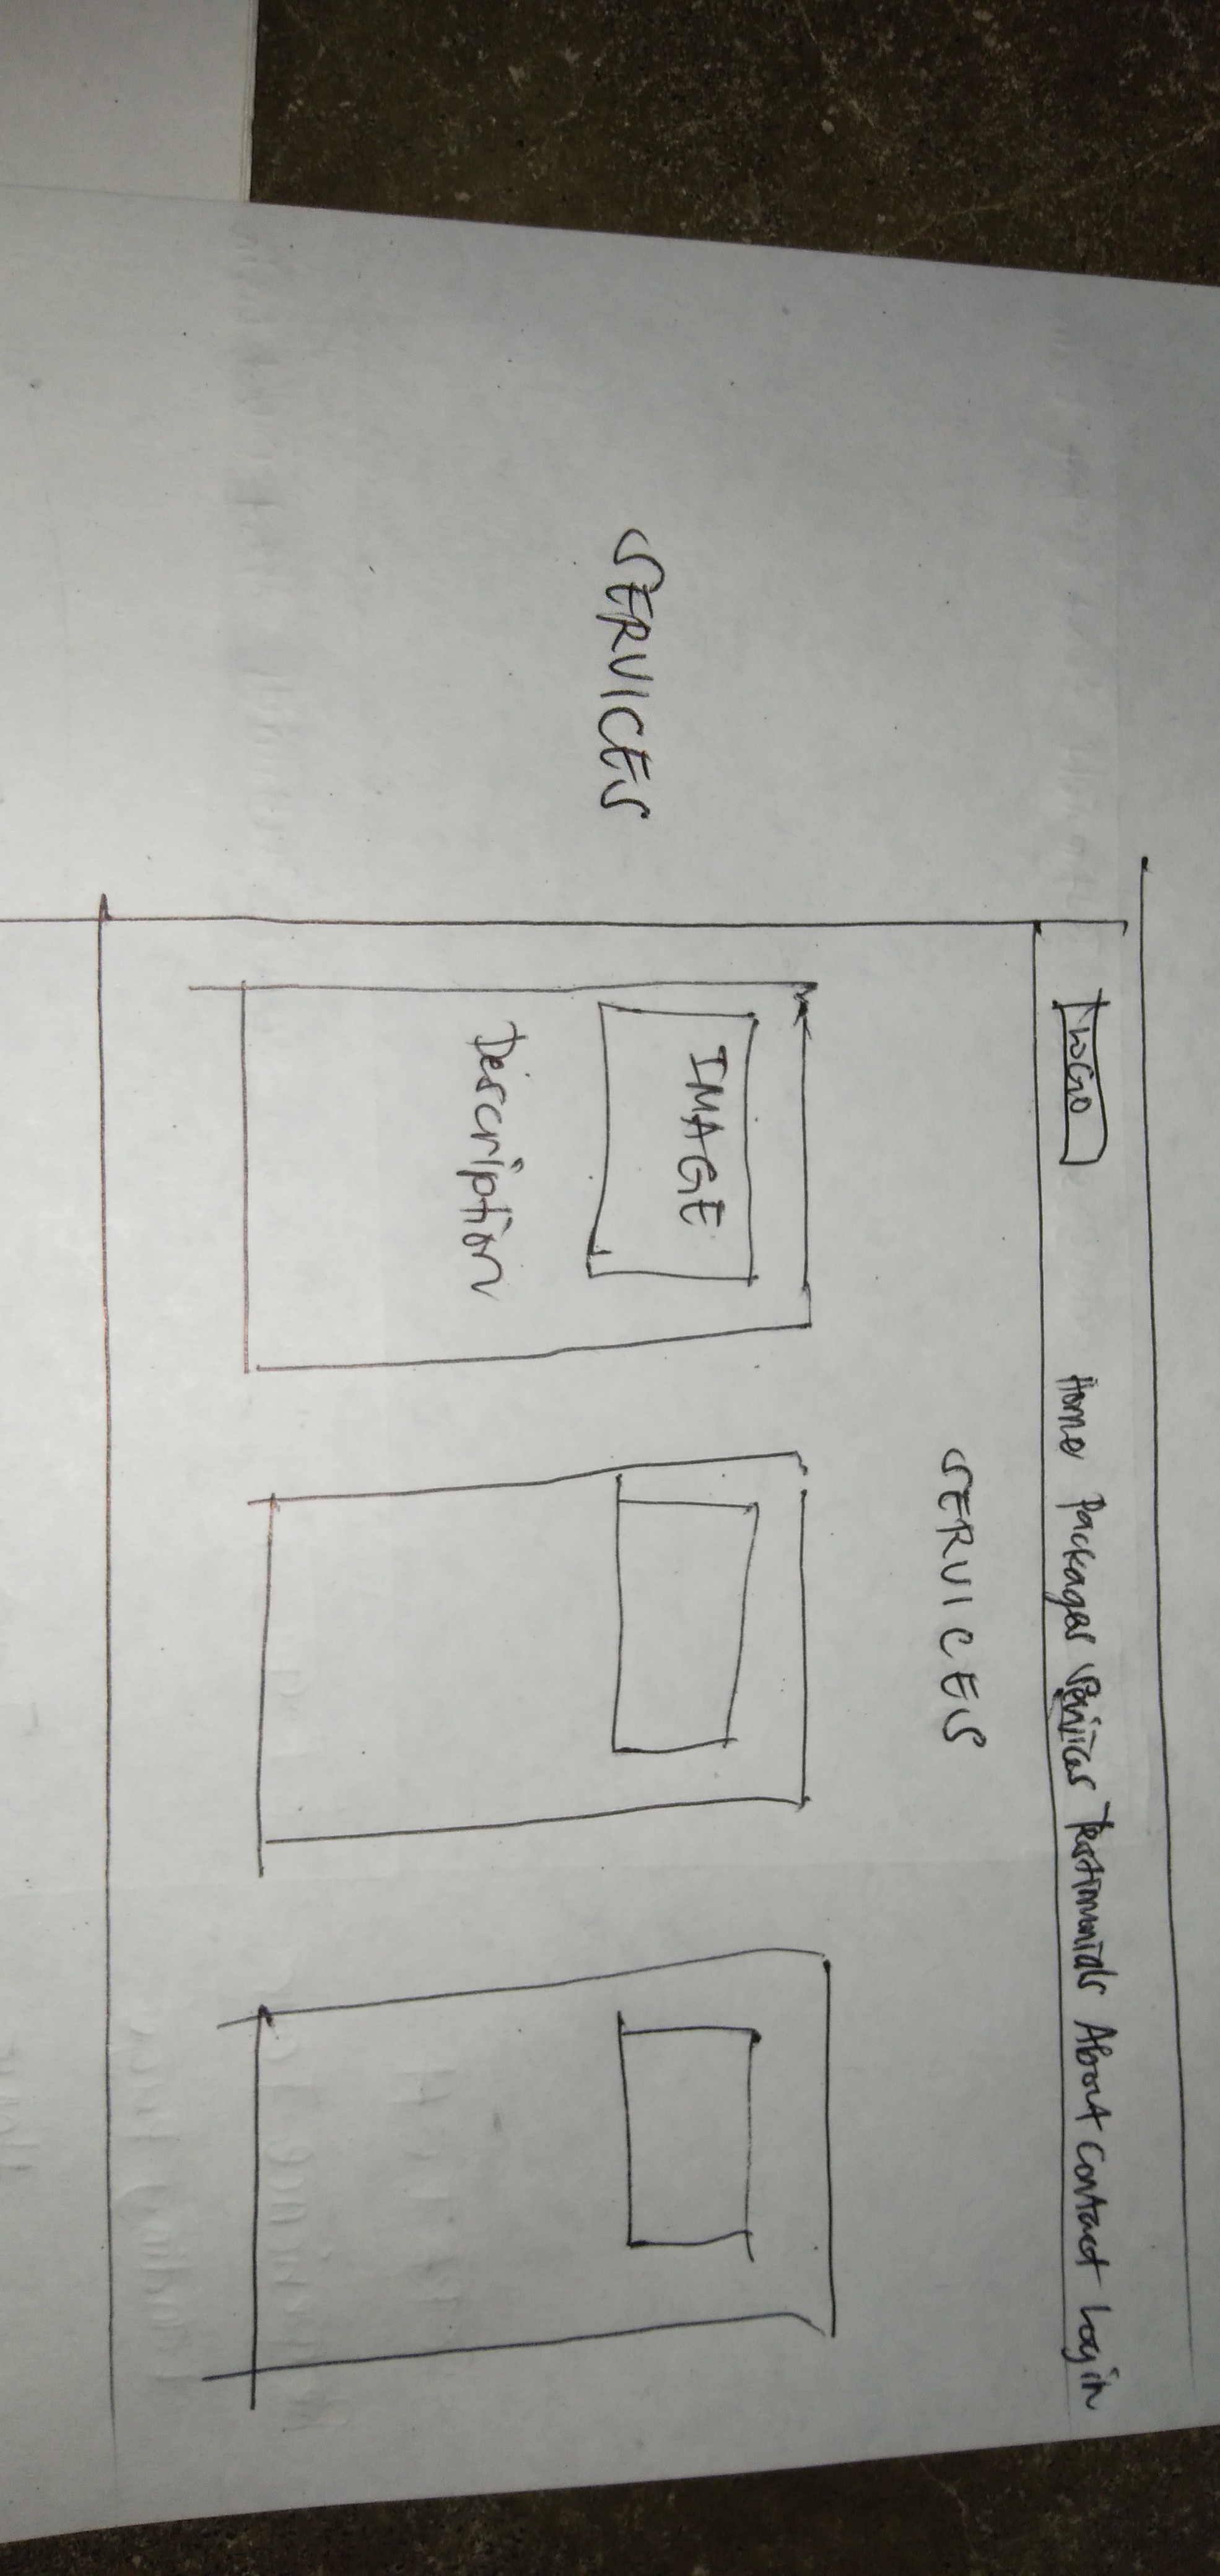 LOGO Home Packages Services Testimonials About Contact Login
SERVICES
IMAGE
SERVICES
Description